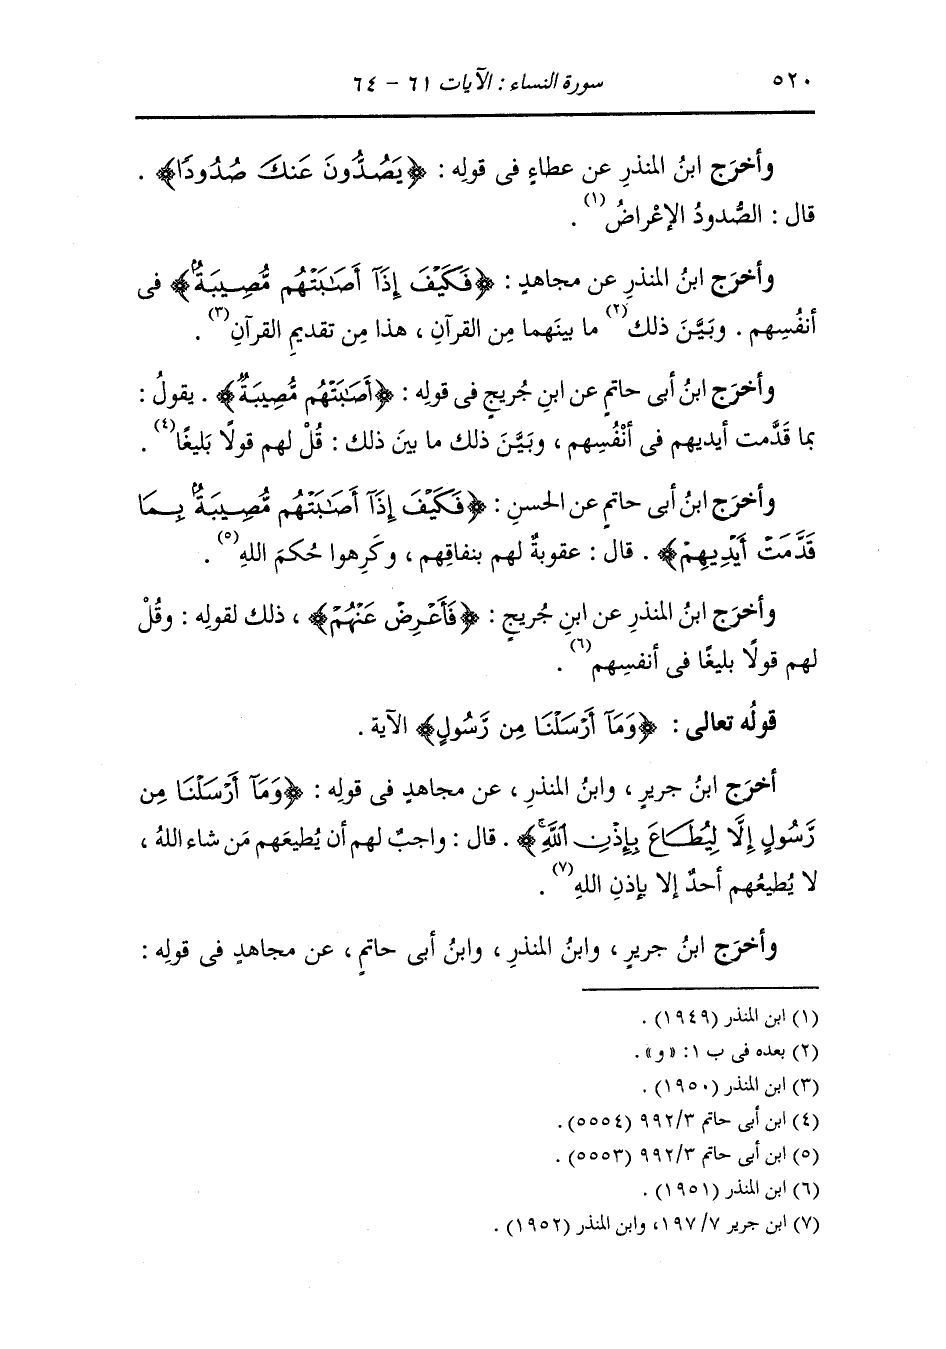 ٥٢٠ سورة النساء : الآيات ٦١ – ٦٤
وأخرَج ابنُ المنذرِ عن عطاءٍ فى قولِه : ﴿يَصُدُّونَ عَنكَ صُدُودًا﴾ .
قال : الصُّدودُ الإعْراضُ(١) .
وأخرَج ابنُ المنذرِ عن مجاهدٍ : ﴿فَكَيْفَ إِذَآ أَصَٰبَتْهُم مُّصِيبَةٌۢ﴾ فى
أنفُسِهم . وبَيَّنَ ذلك(٢) ما بينَهما مِن القرآنِ ، هذا مِن تقديمِ القرآنِ(٣) .
وأخرَج ابنُ أبى حاتمٍ عن ابنِ جُريجٍ فى قولِه : ﴿أَصَٰبَتْهُم مُّصِيبَةٌۢ﴾ . يقولُ :
بما قَدَّمت أيديهم فى أنْفُسِهم ، وبَيَّنَ ذلك ما بينَ ذلك : قُلْ لهم قولًا بَليغًا(٤) .
وأخرَج ابنُ أبى حاتمٍ عن الحسنِ : ﴿فَكَيْفَ إِذَآ أَصَٰبَتْهُم مُّصِيبَةٌۢ بِمَا
قَدَّمَتْ أَيْدِيهِمْ﴾ . قال : عقوبةٌ لهم بنفاقِهم ، وكَرِهوا حُكمَ اللهِ(٥) .
وأخرَج ابنُ المنذرِ عن ابنِ جُريجٍ : ﴿فَأَعْرِضْ عَنْهُمْ﴾ ، ذلك لقولِه : وقُلْ
لهم قولًا بليغًا فى أنفسِهم(٦) .
قولُه تعالى : ﴿وَمَآ أَرْسَلْنَا مِن رَّسُولٍ﴾ الآية .
أخرَج ابنُ جريرٍ ، وابنُ المنذرِ ، عن مجاهدٍ فى قولِه : ﴿وَمَآ أَرْسَلْنَا مِن
رَّسُولٍ إِلَّا لِيُطَاعَ بِإِذْنِ ٱللَّهِۚ﴾ . قال : واجبٌ لهم أن يُطيعَهم مَن شاء اللهُ ،
لا يُطيعُهم أحدٌ إلا بإذنِ اللهِ(٧) .
وأخرَج ابنُ جريرٍ ، وابنُ المنذرِ ، وابنُ أبى حاتمٍ ، عن مجاهدٍ فى قولِه :
(١) ابن المنذر (١٩٤٩) .
(٢) بعده فى ب ١ : « و» .
(٣) ابن المنذر (١٩٥٠) .
(٤) ابن أبى حاتم ٩٩٢/٣ (٥٥٥٤) .
(٥) ابن أبى حاتم ٩٩٢/٣ (٥٥٥٣) .
(٦) ابن المنذر (١٩٥١) .
(٧) ابن جرير ١٩٧/٧ ، وابن المنذر (١٩٥٢) .